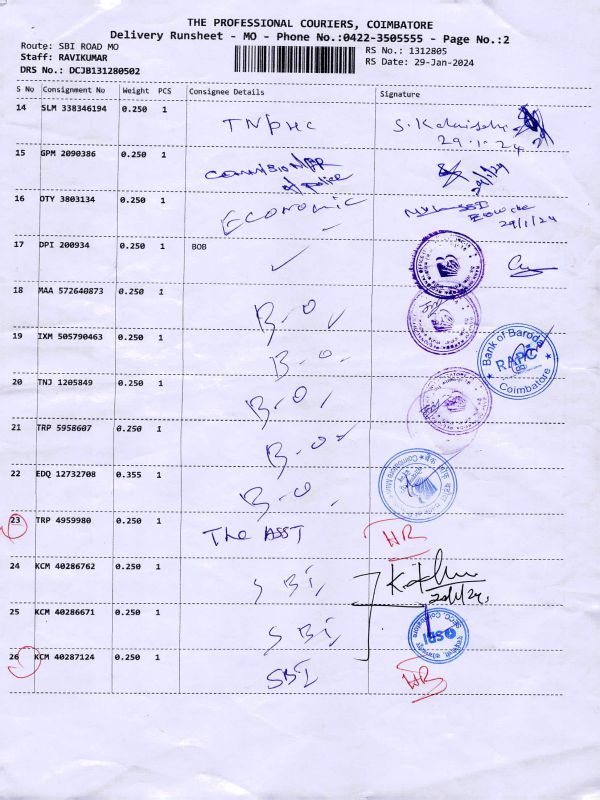 THE PROFESSIONAL COURIERS, COIMBATORE
Delivery Runsheet - MO - Phone No.:0422-3505555 - Page No.:2
Route: SBI ROAD MO
RS No.: 1312805
Staff: RAVIKUMAR
RS Date: 29-Jan-2024
DRS No.: DCJB131280502
S No Consignment No Weight PCS Consignee Details Signature
14 SLM 338346194 0.250 1
TNPHC
29.1.24
15 GPM 2090386 0.250 1
of police
29/1/24
16 OTY 3803134 0.250 1
ECONOMIC
29/1/24
17 DPI 200934 0.250 1 BOB
18 MAA 572640873 0.250 1
B-O
19 IXM 505790463 0.250 1
B-O
Bank of Baroda
RAPC
Coimbatore
20 TNJ 1205849 0.250 1
B-O
21 TRP 5958607 0.250 1
B-O
22 EDQ 12732708 0.355 1
B-O
23 TRP 4959980 0.250 1
The ASST HR
24 KCM 40286762 0.250 1
SBI
25 KCM 40286671 0.250 1
SBI
SBI
26 KCM 40287124 0.250 1
SBI HR